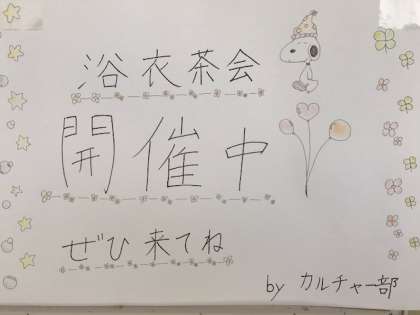 浴衣茶会
開催中
ぜひ来てね
by カルチャー部